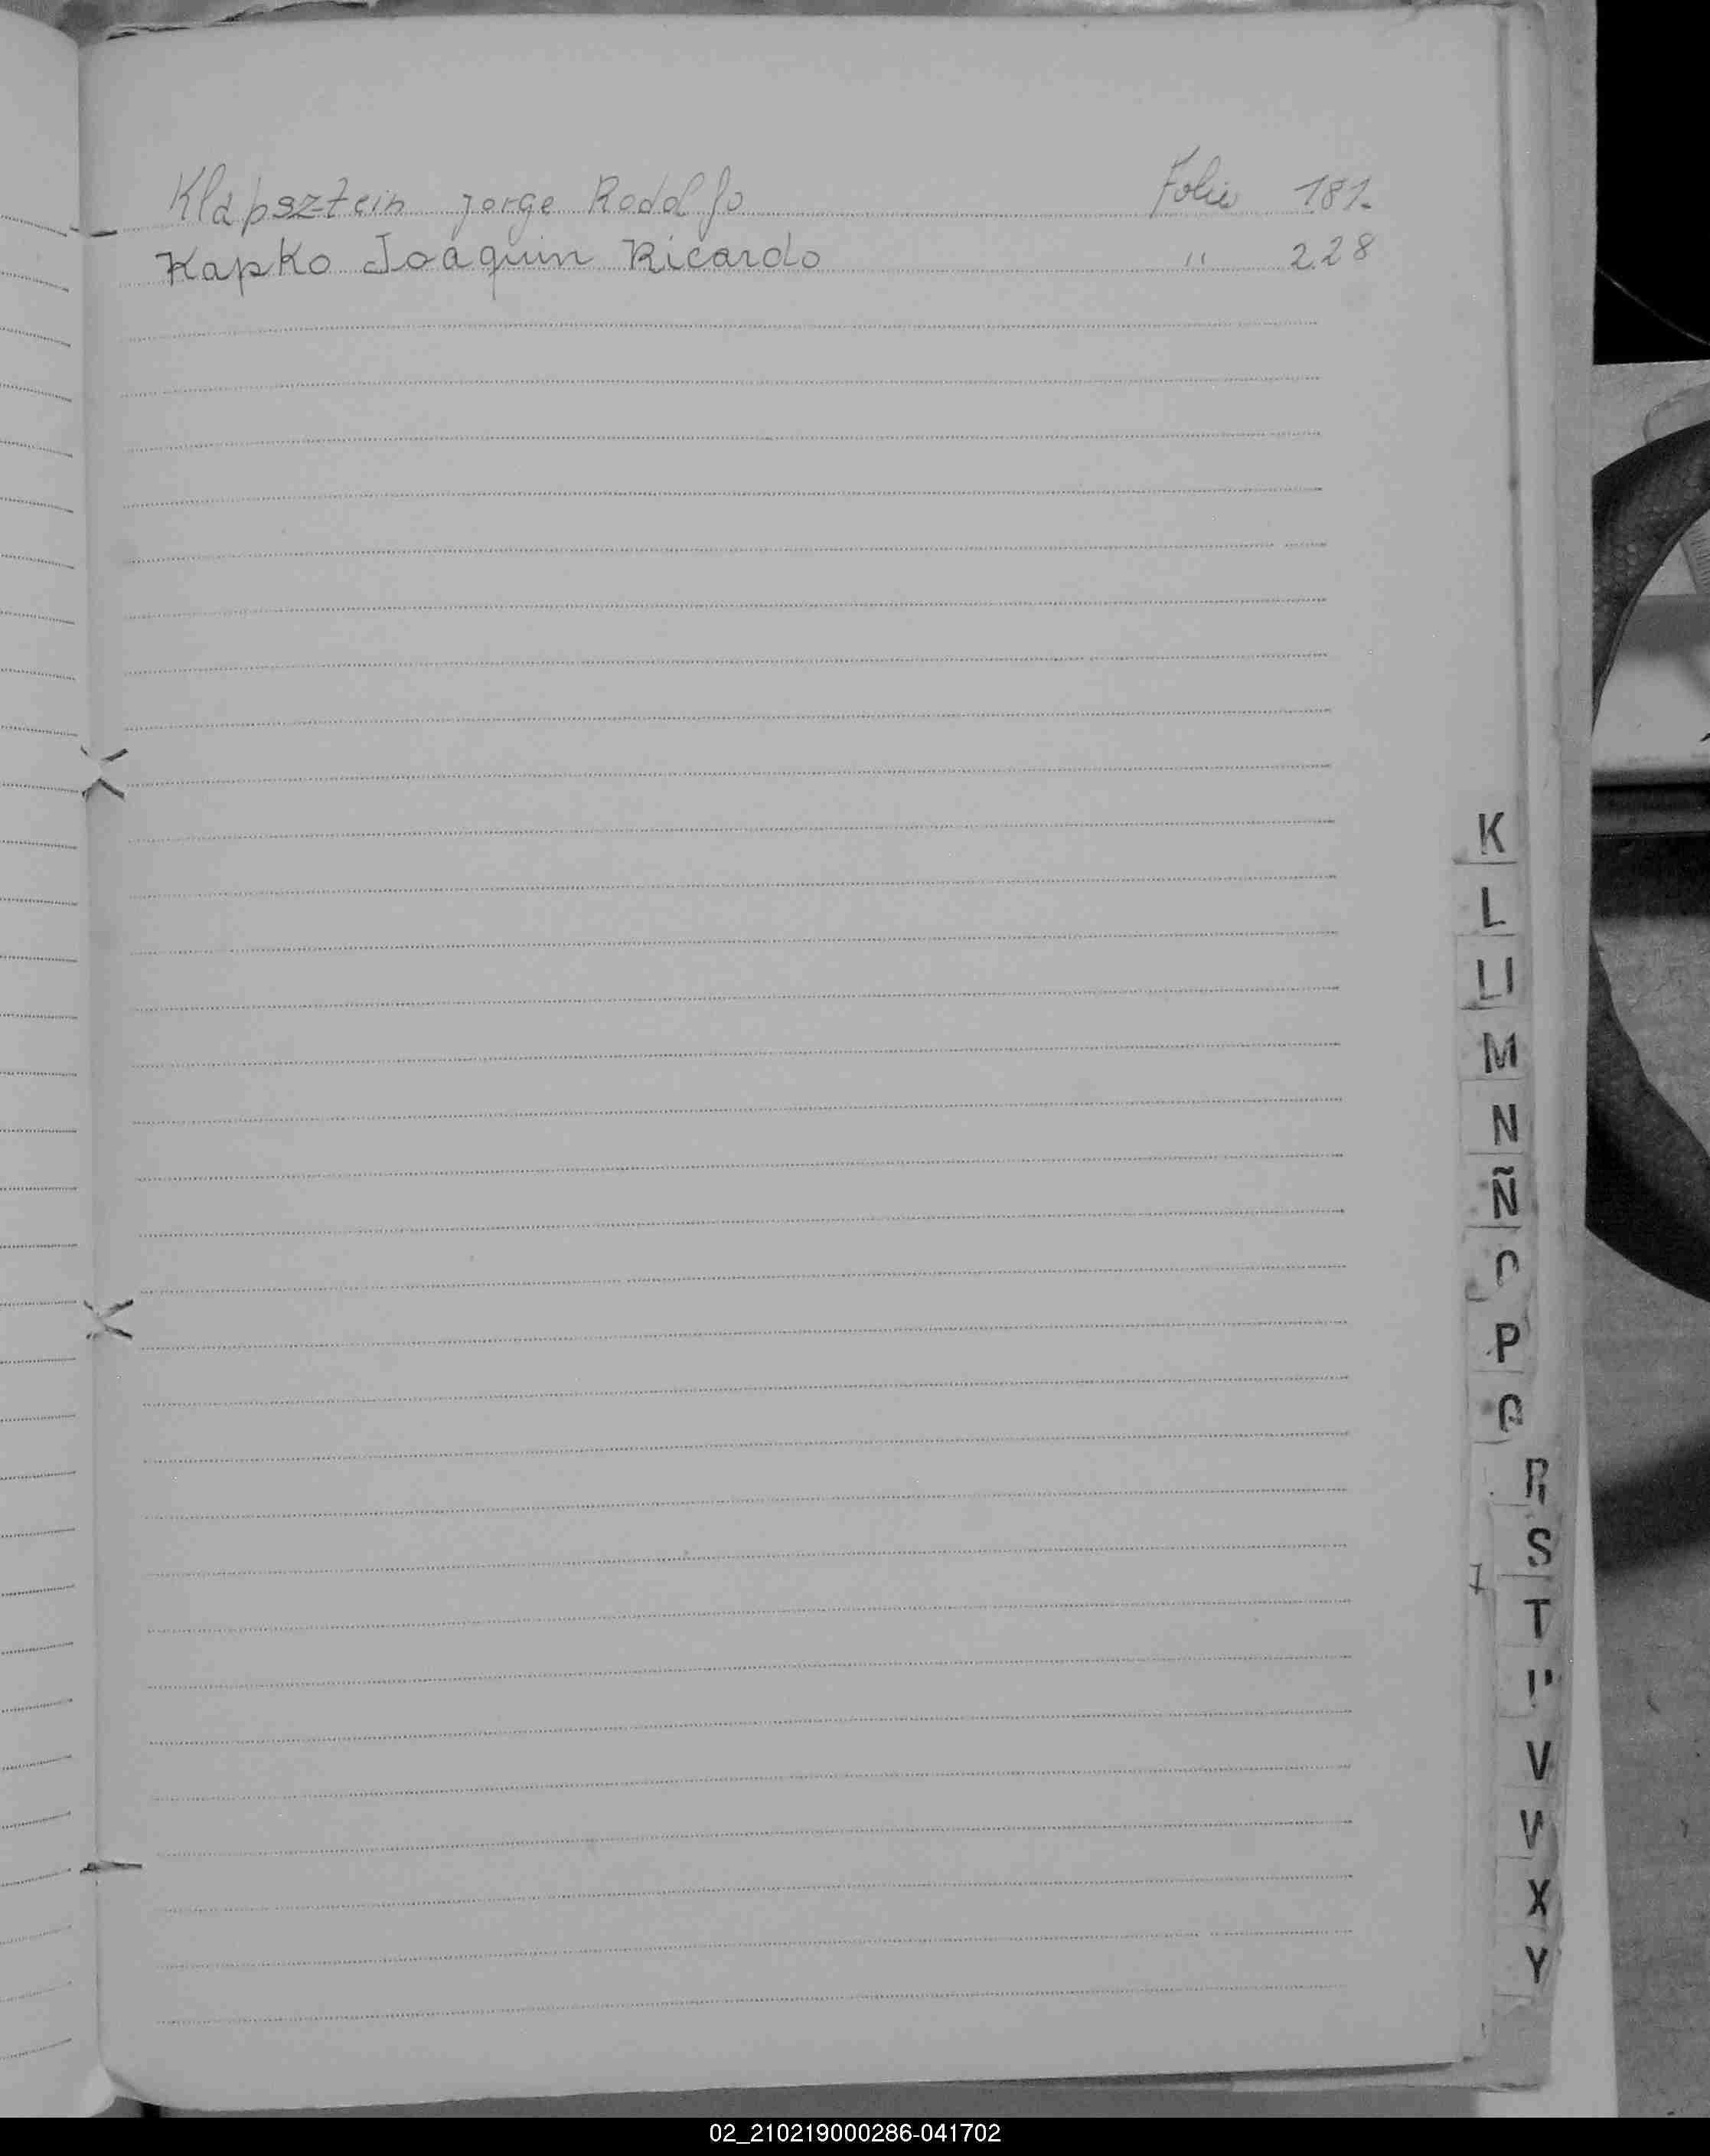 Klapsztein Jorge Rodolfo Folio 181.
Kapko Joaquin Ricardo " 228
K
L
Ll
M
N
Ñ
O
P
Q
R
S
T
V
W
X
Y
02_210219000286-041702